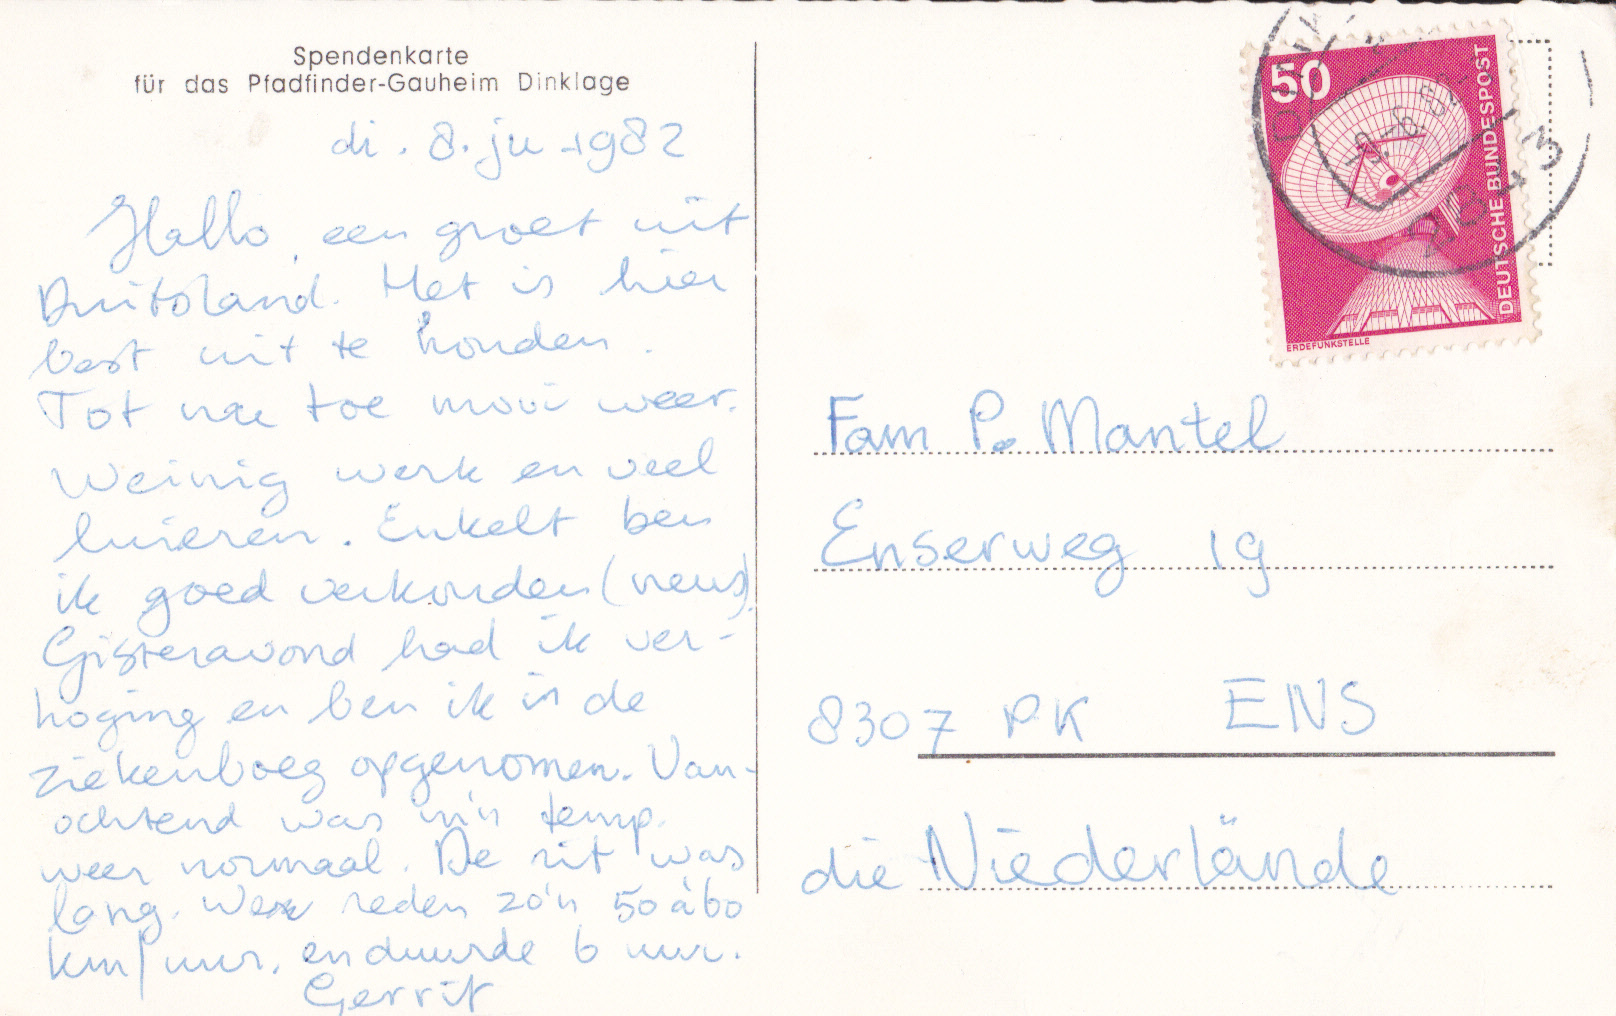 Spendenkarte
für das Pfadfinder-Gauheim Dinklage
di. 8. ju 1982
Hallo, een groet uit
Duitsland. Het is hier
best uit te houden.
Tot nu toe mooi weer.
Weinig werk en veel
luieren. Enkelt ben
ik goed verkouden (neus).
Gisteravond had ik ver-
hoging en ben ik in de
ziekenboeg opgenomen. Van-
ochtend was m'n temp.
weer normaal. De rit was
lang. We reden zo'n 50 à 60
km/uur, en duurde 6 uur.
Gerrit
50
DEUTSCHE BUNDESPOST
ERDEFUNKSTELLE
Fam P. Mantel
Enserweg 19
8307 PK ENS
die Niederlände